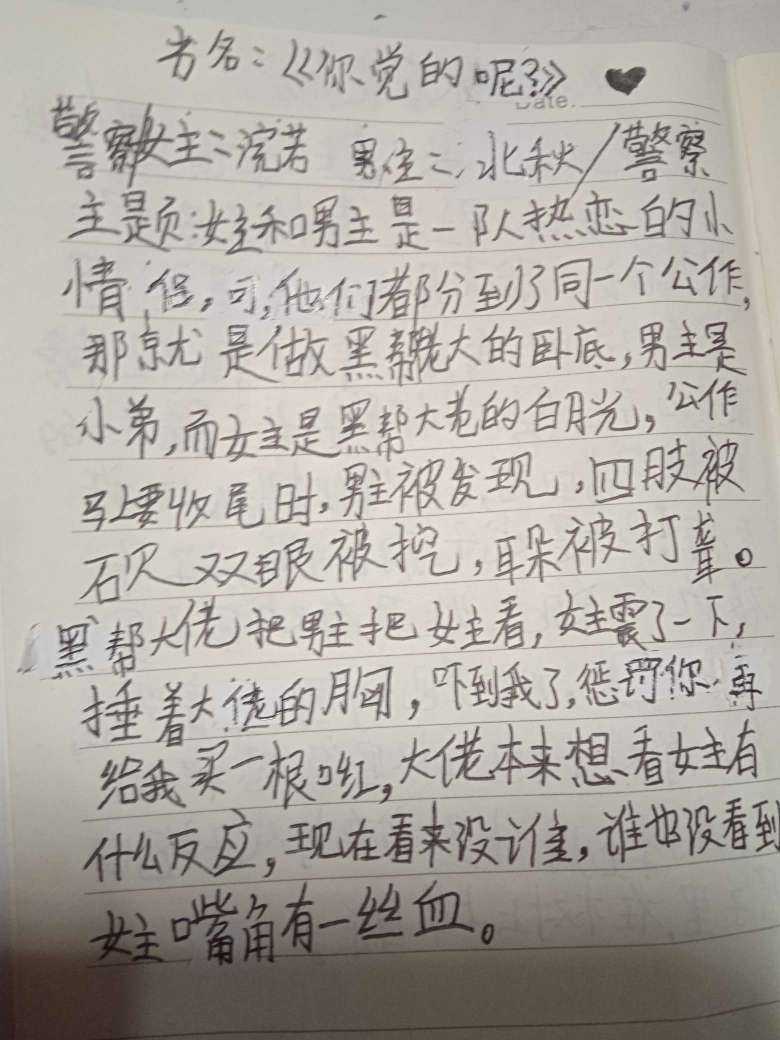 书名:《你觉的呢?》
Date.
警察/女主:浣若 男主:北秋/警察
主题:女主和男主是一队热恋的小
情侣,可,他们都分到了同一个公作,
那就是做黑帮大的卧底,男主是
小弟,而女主是黑帮大佬的白月光,公作
马上要收尾时,男主被发现,四肢被
砍双眼被挖,耳朵被打聋。
黑帮大佬把男主把女主看,女主震了一下,
捶着大佬的胸,吓到我了,惩罚你再
给我买一根口红,大佬本来想看女主有
什么反应,现在看来没谁,谁也没看到
女主嘴角有一丝血。